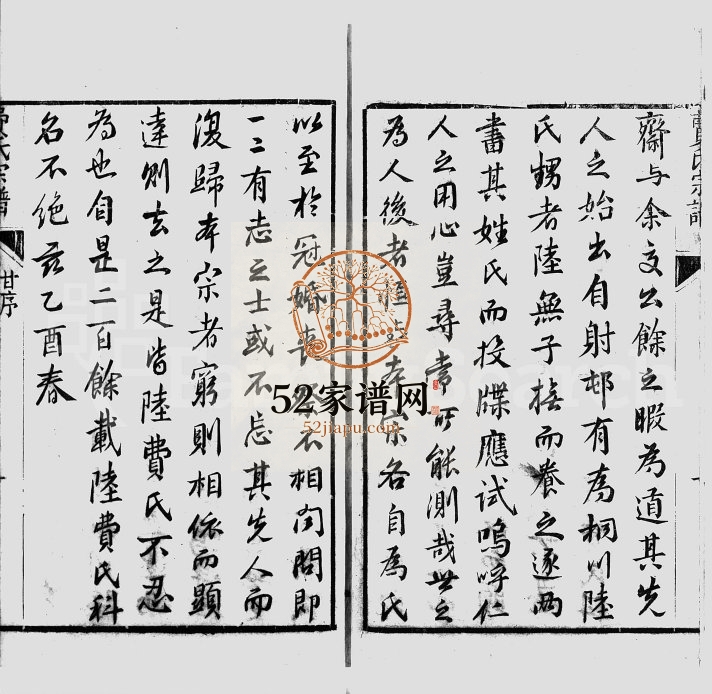 齋与余交公餘之暇為道其先
人之始出自射邨有為桐川陸
氏甥者陸無子撫而養之遂兩
書其姓氏而投牒應試嗚呼仁
人之用心豈尋常所能測哉世之
為人後者 本宗各自為氏
以至於冠婚喪祭不相聞問即
一二有志之士或不忘其先人而
復歸本宗者窮則相依而顯
達則去之是皆陸費氏不忍
為也自是二百餘載陸費氏科
名不絕茲乙酉春
費氏宗譜
甘序
52家谱网
52jiapu.com